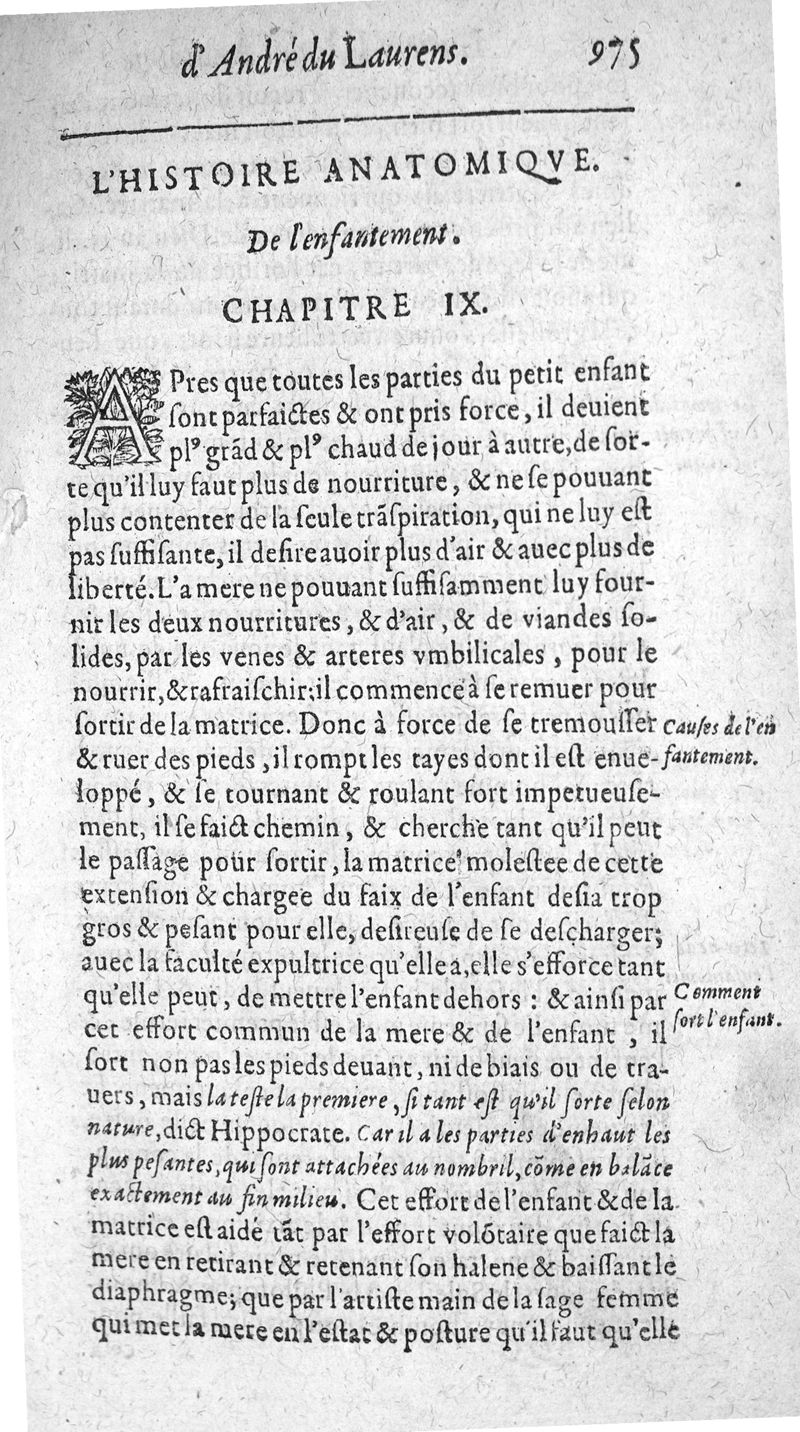 d'André du Laurens. 975
L'HISTOIRE ANATOMIQVE.
De l'enfantement.
CHAPITRE IX.
APres que toutes les parties du petit enfant
ſont parfaictes & ont pris force, il deuient
plꝰ grãd & plꝰ chaud de jour à autre, de ſor-
te qu'il luy faut plus de nourriture, & ne ſe pouuant
plus contenter de la ſeule trãſpiration, qui ne luy eſt
pas ſuffiſante, il deſire auoir plus d'air & auec plus de
liberté. L'a mere ne pouuant ſuffiſamment luy four-
nir les deux nourritures, & d'air, & de viandes ſo-
lides, par les venes & arteres vmbilicales, pour le
nourrir, & rafraiſchir; il commence à ſe remuer pour
ſortir de la matrice. Donc à force de ſe tremouſſer
& ruer des pieds, il rompt les tayes dont il eſt enue-
loppé, & ſe tournant & roulant fort impetueuſe-
ment, il ſe faict chemin, & cherche tant qu'il peut
le paſſage pour ſortir, la matrice molestee de cette
extenſion & chargee du faix de l'enfant deſia trop
gros & peſant pour elle, deſireuſe de ſe deſcharger;
auec la faculté expultrice qu'elle a, elle s'efforce tant
qu'elle peut, de mettre l'enfant dehors : & ainſi par
cet effort commun de la mere & de l'enfant, il
ſort non pas les pieds deuant, ni de biais ou de tra-
uers, mais la teſte la premiere, ſi tant eſt qu'il ſorte ſelon
nature, dict Hippocrate. Car il a les parties d'enhaut les
plus peſantes, qui ſont attachées au nombril, cõme en balãce
exactement au fin milieu. Cet effort de l'enfant & de la
matrice eſt aidé tãt par l'effort volõtaire que faict la
mere en retirant & retenant ſon halene & baiſſant le
diaphragme; que par l'artiſte main de la ſage femme
qui met la mere en l'eſtat & poſture qu'il faut qu'elle
Cauſes de l'en
fantement.
Comment
ſort l'enfant.